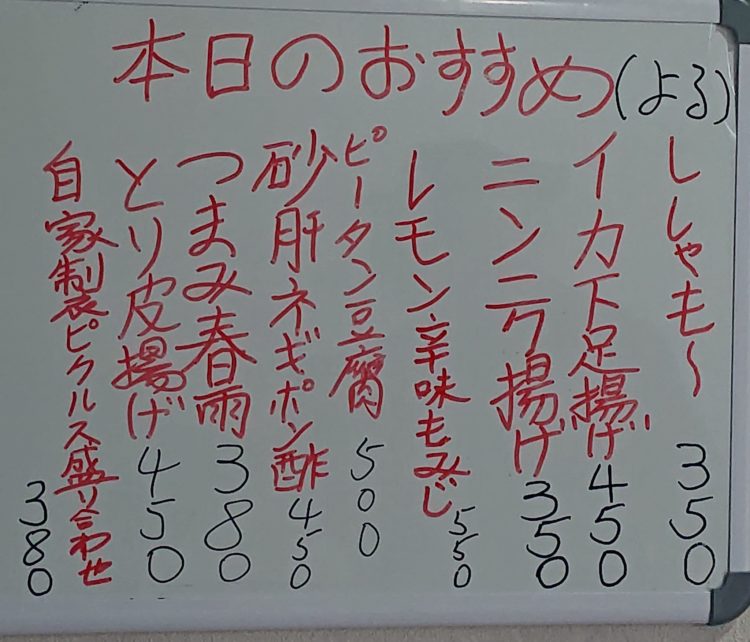 本日のおすすめ(よる)
ししゃも〜 350
イカ下足揚げ 450
ニンニク揚げ 350
レモン辛味もみじ 550
ピータン豆腐 500
砂肝ネギポン酢 450
つまみ春雨 380
とり皮揚げ 450
自家製ピクルス盛り合わせ 380